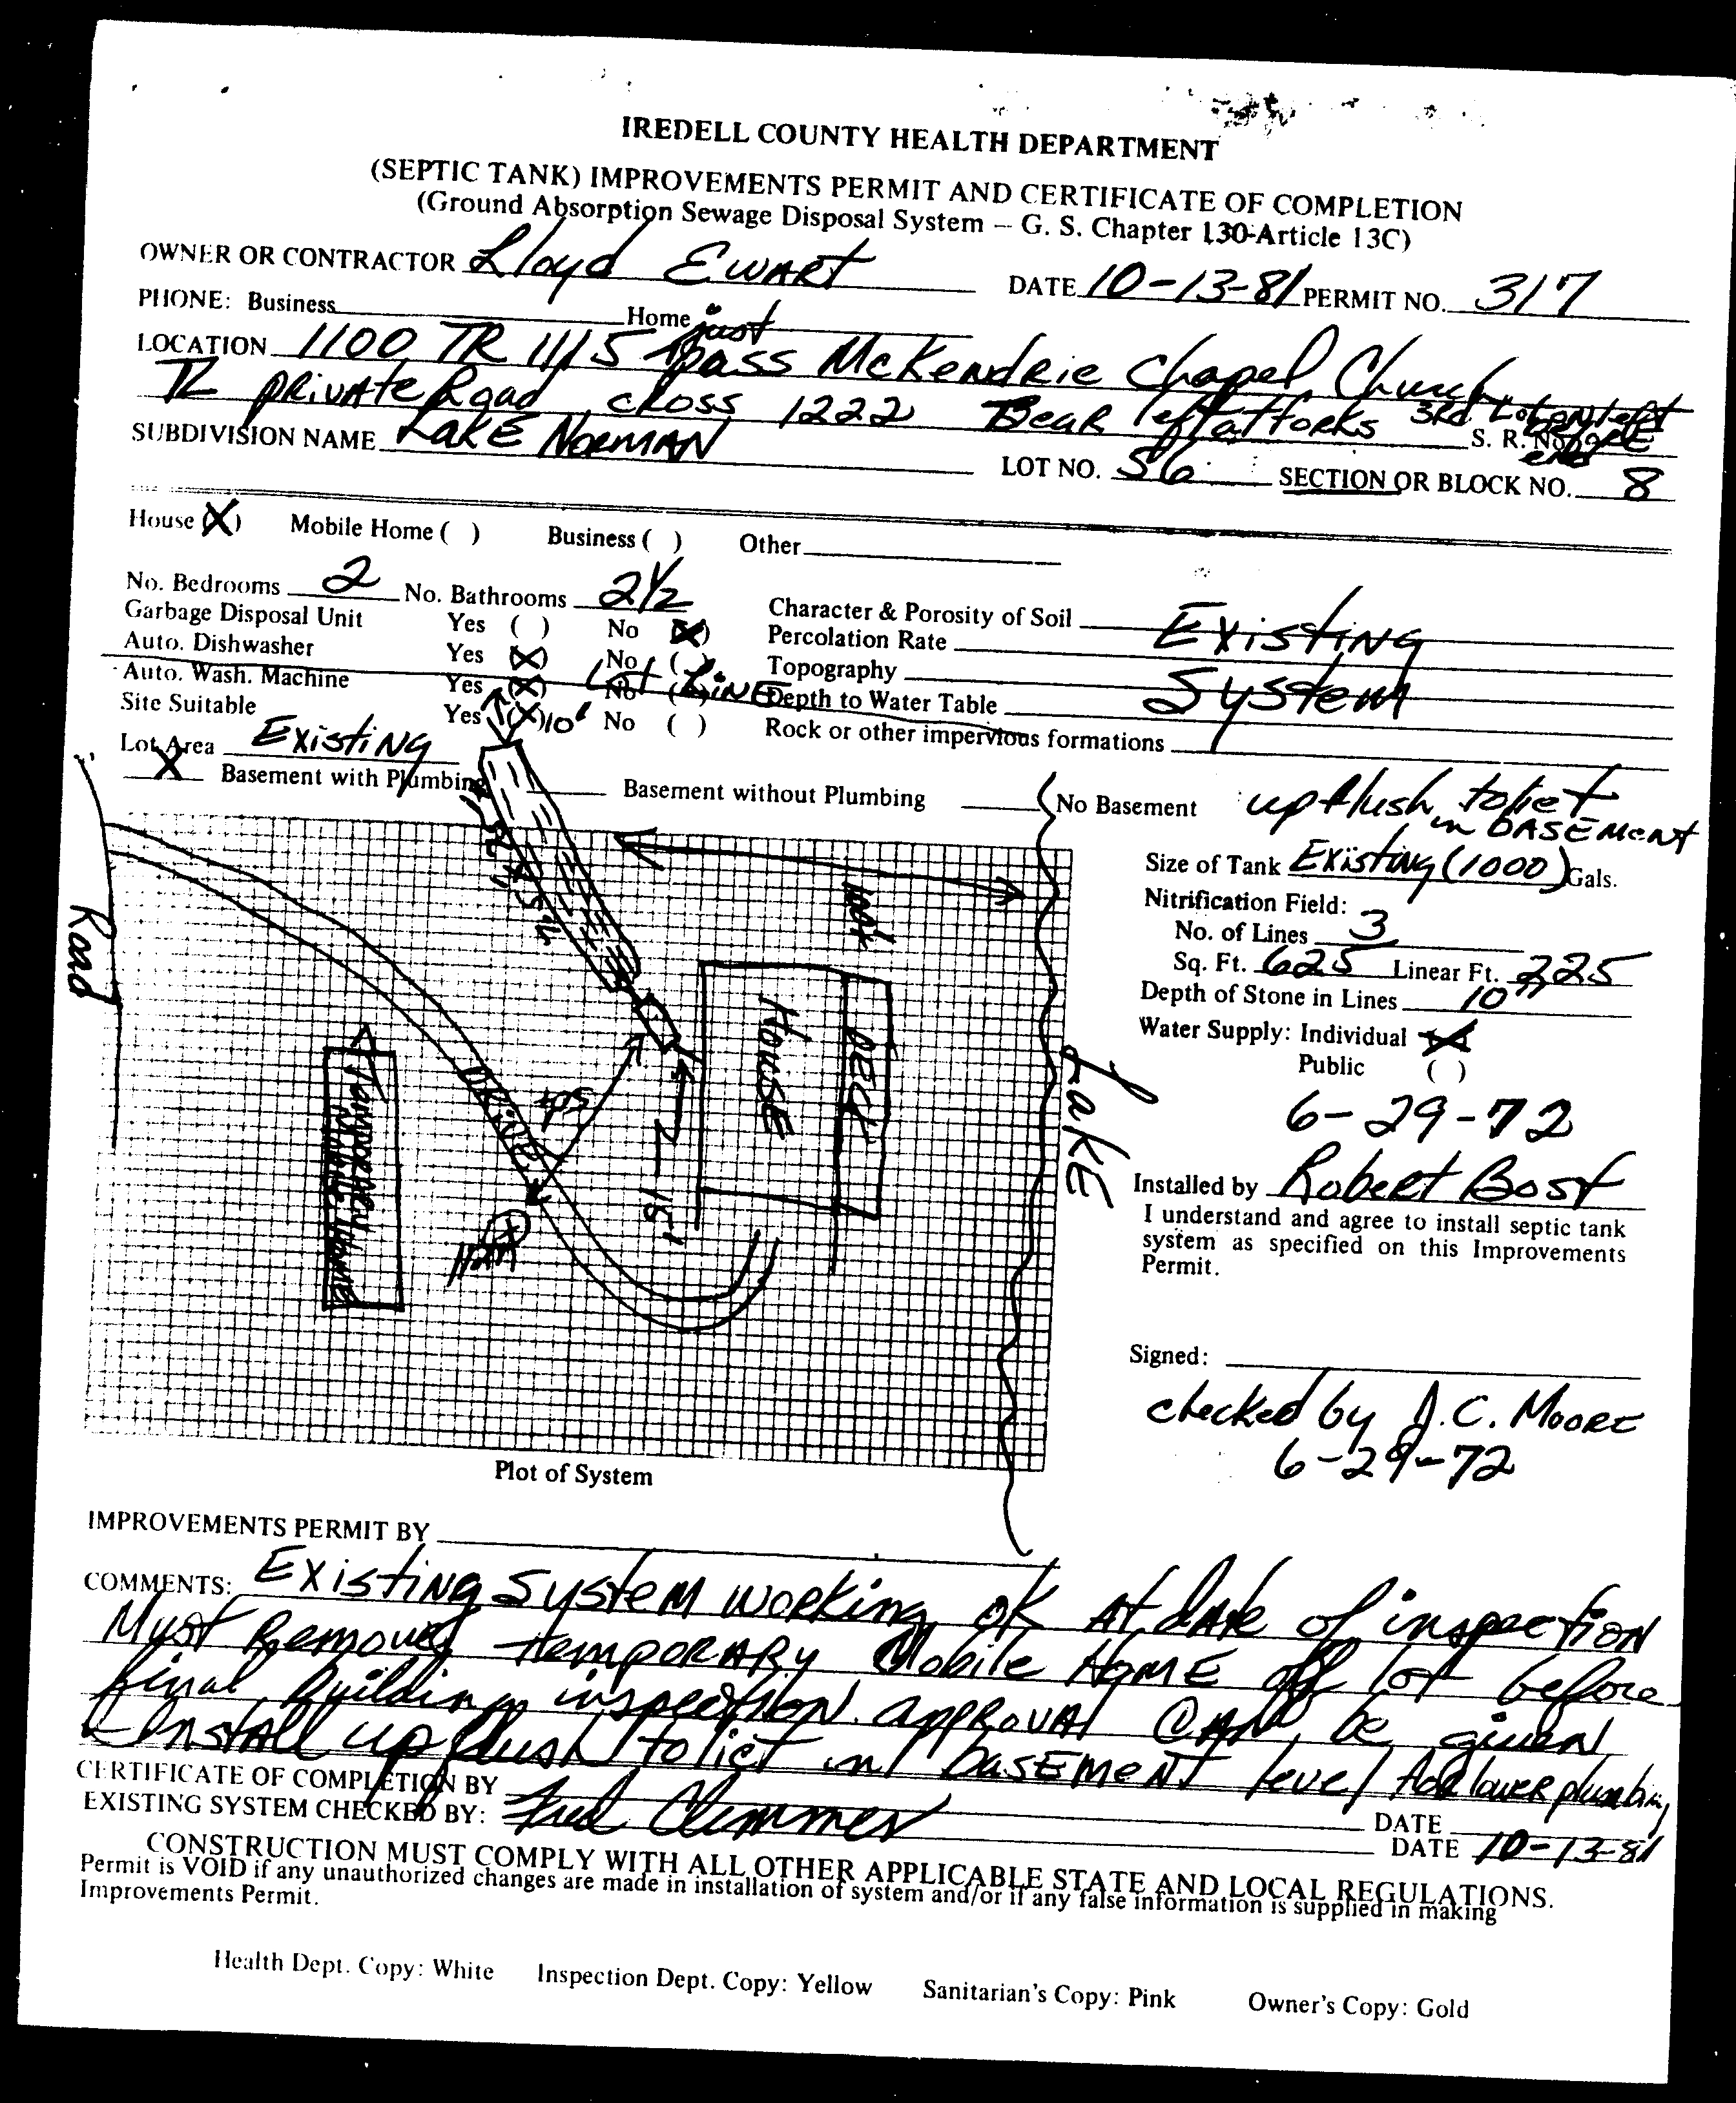 IREDELL COUNTY HEALTH DEPARTMENT
(SEPTIC TANK) IMPROVEMENTS PERMIT AND CERTIFICATE OF COMPLETION
(Ground Absorption Sewage Disposal System – G. S. Chapter 130-Article 13C)
OWNER OR CONTRACTOR Lloyd Ewart DATE 10-13-81 PERMIT NO. 317
PHONE: Business Home
LOCATION 1100 TR 1115 just pass McKendrie Chapel Church
TL private Road cross 1222 Bear left at forks 3rd Lot on left
SUBDIVISION NAME Lake Norman S. R. No. end
LOT NO. 56 SECTION OR BLOCK NO. 8
House (X) Mobile Home ( ) Business ( ) Other
No. Bedrooms 2 No. Bathrooms 2 1/2
Garbage Disposal Unit Yes ( ) No (X)
Auto. Dishwasher Yes (X) No ( )
Auto. Wash. Machine Yes (X) No ( )
Site Suitable Yes (X) No ( )
Lot Area Existing
Lot Line
10'
Character & Porosity of Soil Existing
Percolation Rate
Topography System
Depth to Water Table
Rock or other impervious formations
X Basement with Plumbing Basement without Plumbing No Basement
upflush toliet in basement
Size of Tank Existing (1000) Gals.
Nitrification Field:
No. of Lines 3
Sq. Ft. 625 Linear Ft. 225
Depth of Stone in Lines 10"
Water Supply: Individual (X)
Public ( )
6-29-72
Installed by Robert Bost
I understand and agree to install septic tank
system as specified on this Improvements
Permit.
Signed:
checked by J.C. Moore
6-29-72
Road
Drive
Well
House
Deck
15'
Lake
Plot of System
IMPROVEMENTS PERMIT BY
COMMENTS: Existing System working ok at date of inspection
Must Remove temporary Mobile Home off lot before
final building inspection approval can be given
Install up flush toliet in basement level for lower plumbing
CERTIFICATE OF COMPLETION BY DATE
EXISTING SYSTEM CHECKED BY: Fred Clemmer DATE 10-13-81
CONSTRUCTION MUST COMPLY WITH ALL OTHER APPLICABLE STATE AND LOCAL REGULATIONS.
Permit is VOID if any unauthorized changes are made in installation of system and/or if any false information is supplied in making
Improvements Permit.
Health Dept. Copy: White Inspection Dept. Copy: Yellow Sanitarian's Copy: Pink Owner's Copy: Gold